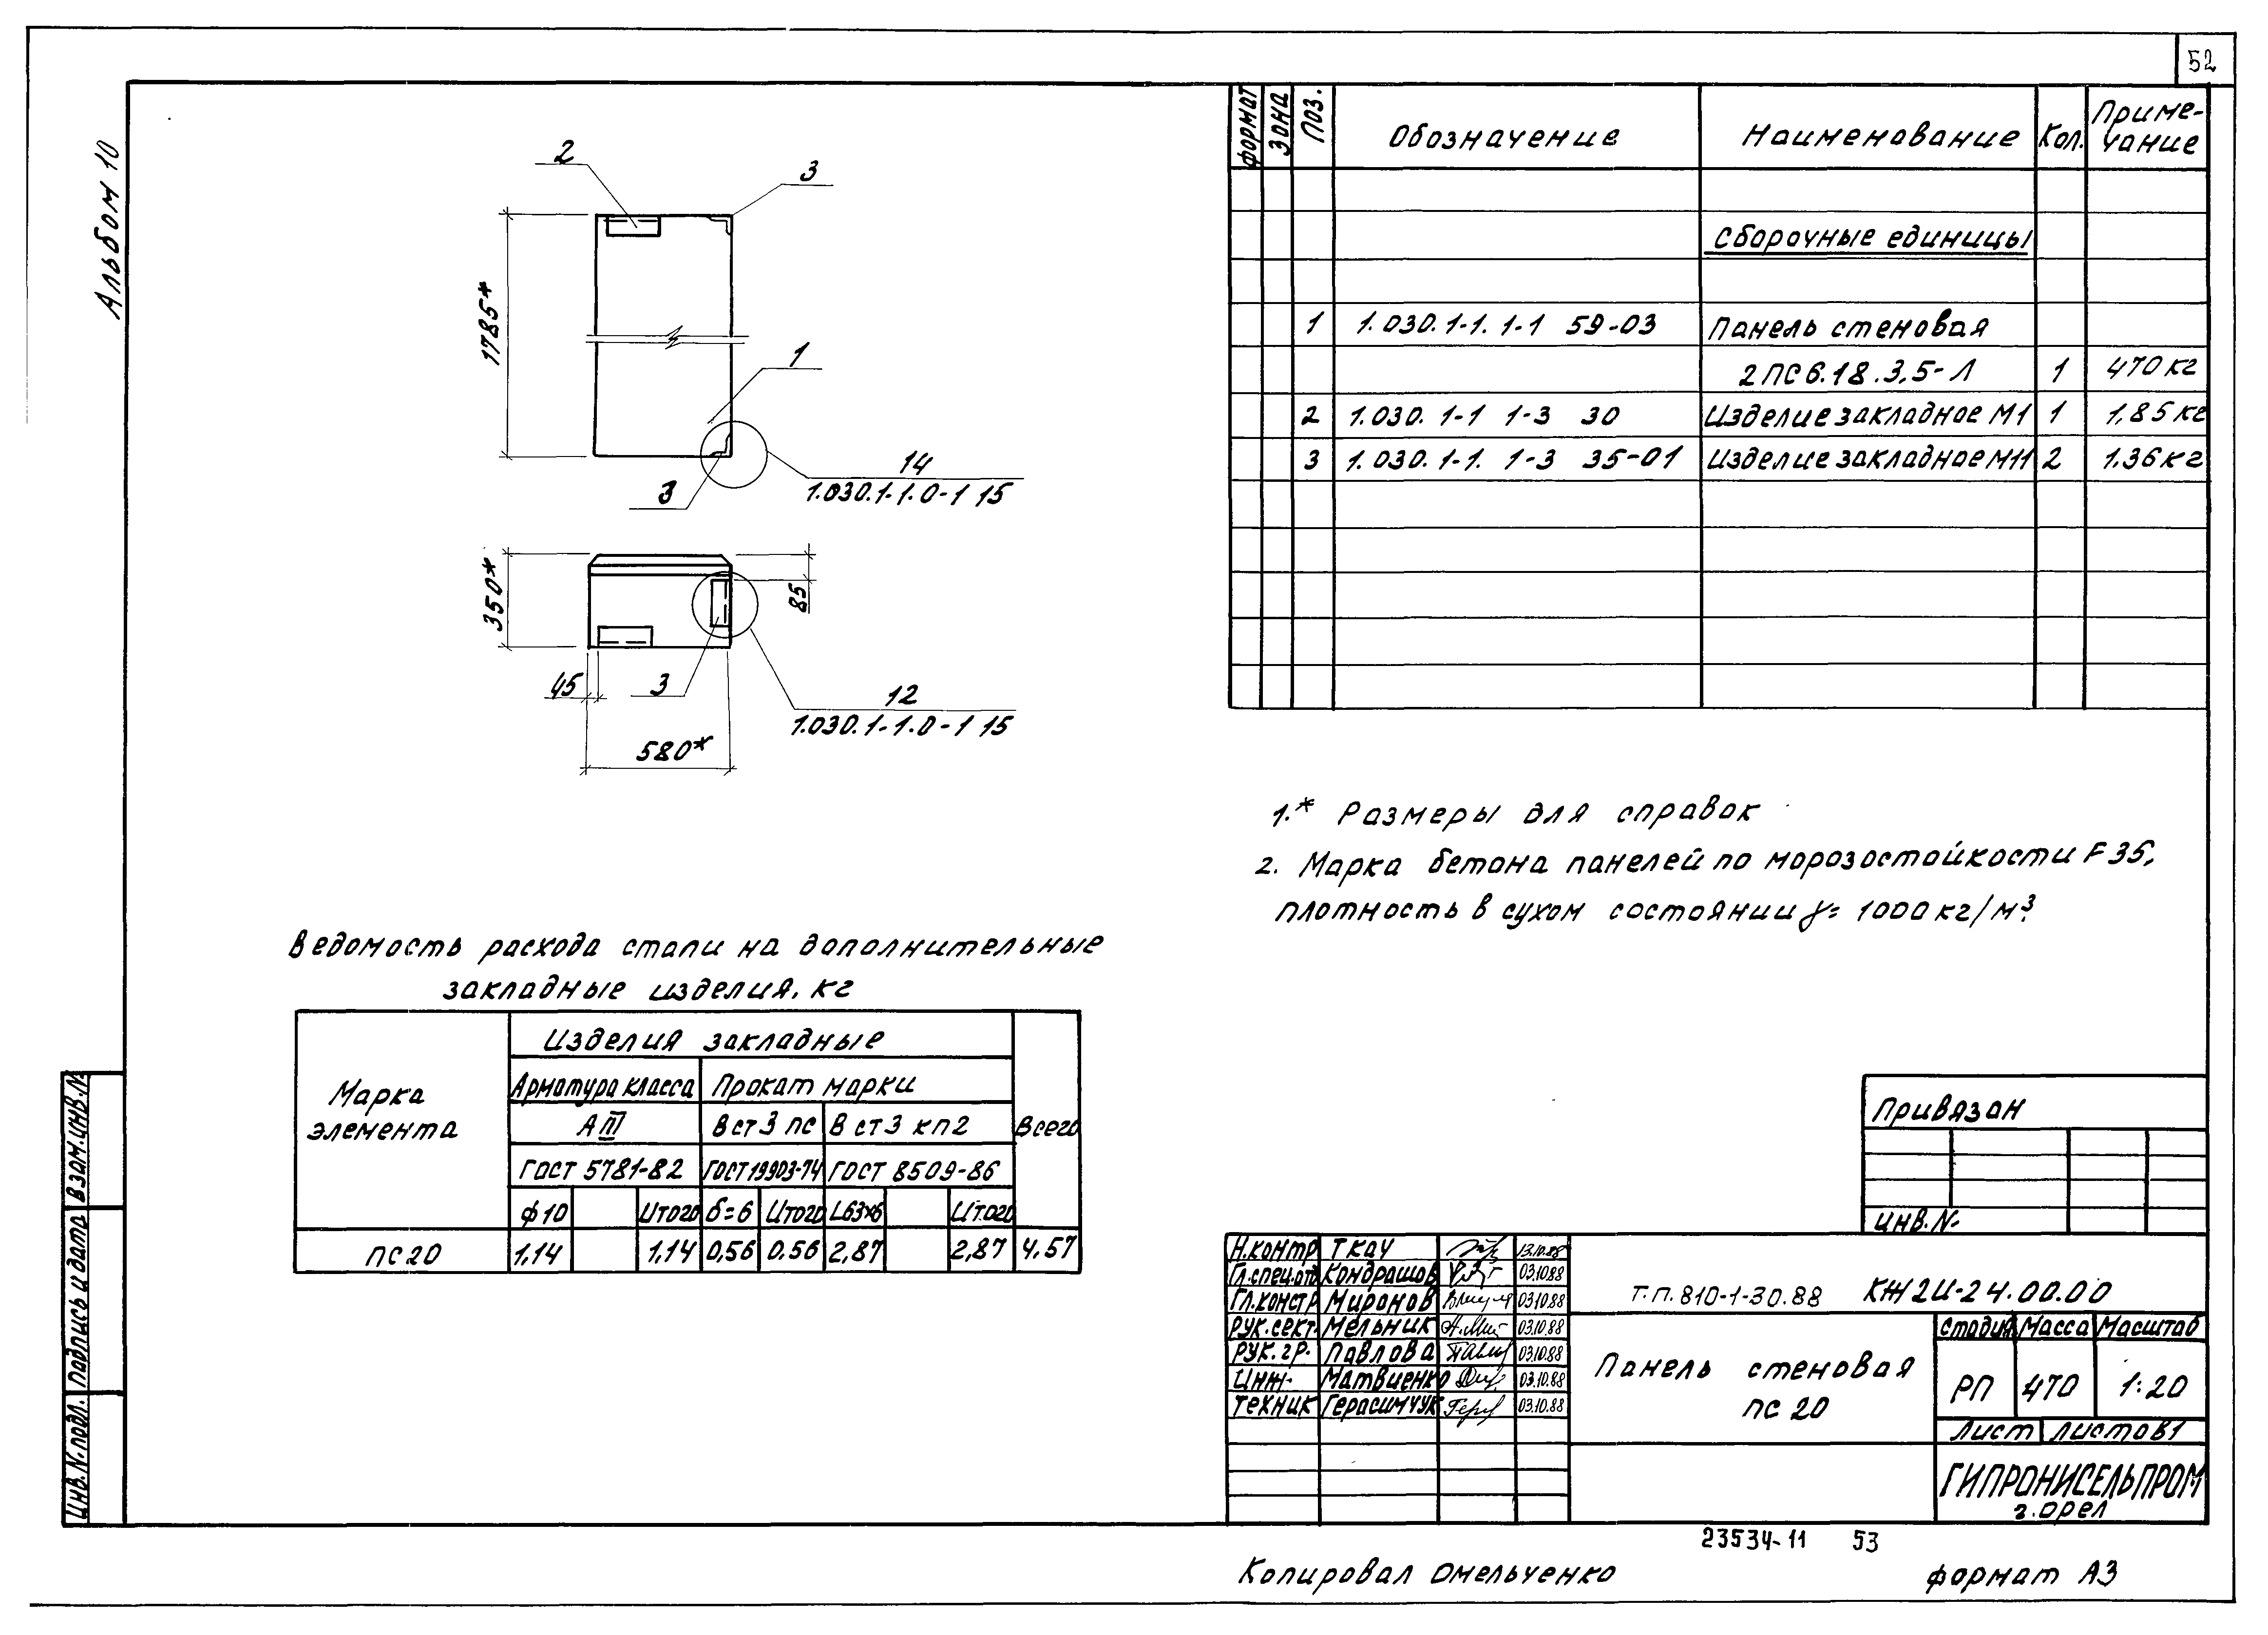 52
Альбом 10
2
3
1785*
1
3
14
1.030.1-1.0-1 15
350*
85
45
3
12
1.030.1-1.0-1 15
580*
формат Зона Поз. Обозначение Наименование Кол. Приме-
чание
Сборочные единицы
1 1.030.1-1. 1-1 59-03 Панель стеновая
2ПС6.18.3,5-Л 1 470кг
2 1.030.1-1 1-3 30 Изделие закладное М1 1 1,85кг
3 1.030.1-1. 1-3 35-01 Изделие закладное М11 2 1.36кг
1.* Размеры для справок
2. Марка бетона панелей по морозостойкости F35,
плотность в сухом состоянии γ= 1000кг/м³.
Ведомость расхода стали на дополнительные
закладные изделия, кг
Марка
элемента
Изделия закладные
Всего
Арматура класса Прокат марки
АIII В ст3 пс В ст3 кп2
ГОСТ 5781-82 ГОСТ19903-74 ГОСТ 8509-86
ф10 Итого δ=6 Итого L63х6 Итого
ПС20 1,14 1,14 0,56 0.56 2,87 2,87 4,57
Привязан
Инв.N
Н.контр Ткач 13.10.88
Гл.спец.отд Кондрашов 03.10.88
Гл.констр Миронов 03.10.88
Рук.сект. Мельник 03.10.88
Рук.гр. Павлова 03.10.88
Инж. Матвиенко 03.10.88
Техник Герасимчук 03.10.88
Т.П.810-1-30.88 КЖ2И-24.00.00
Панель стеновая
ПС 20
Стадия Масса Масштаб
РП 470 1:20
Лист Листов1
ГИПРОНИСЕЛЬПРОМ
г.Орел
Взам.инв.N
Подпись и дата
Инв.N.подл.
23534-11 53
Копировал Омельченко формат А3